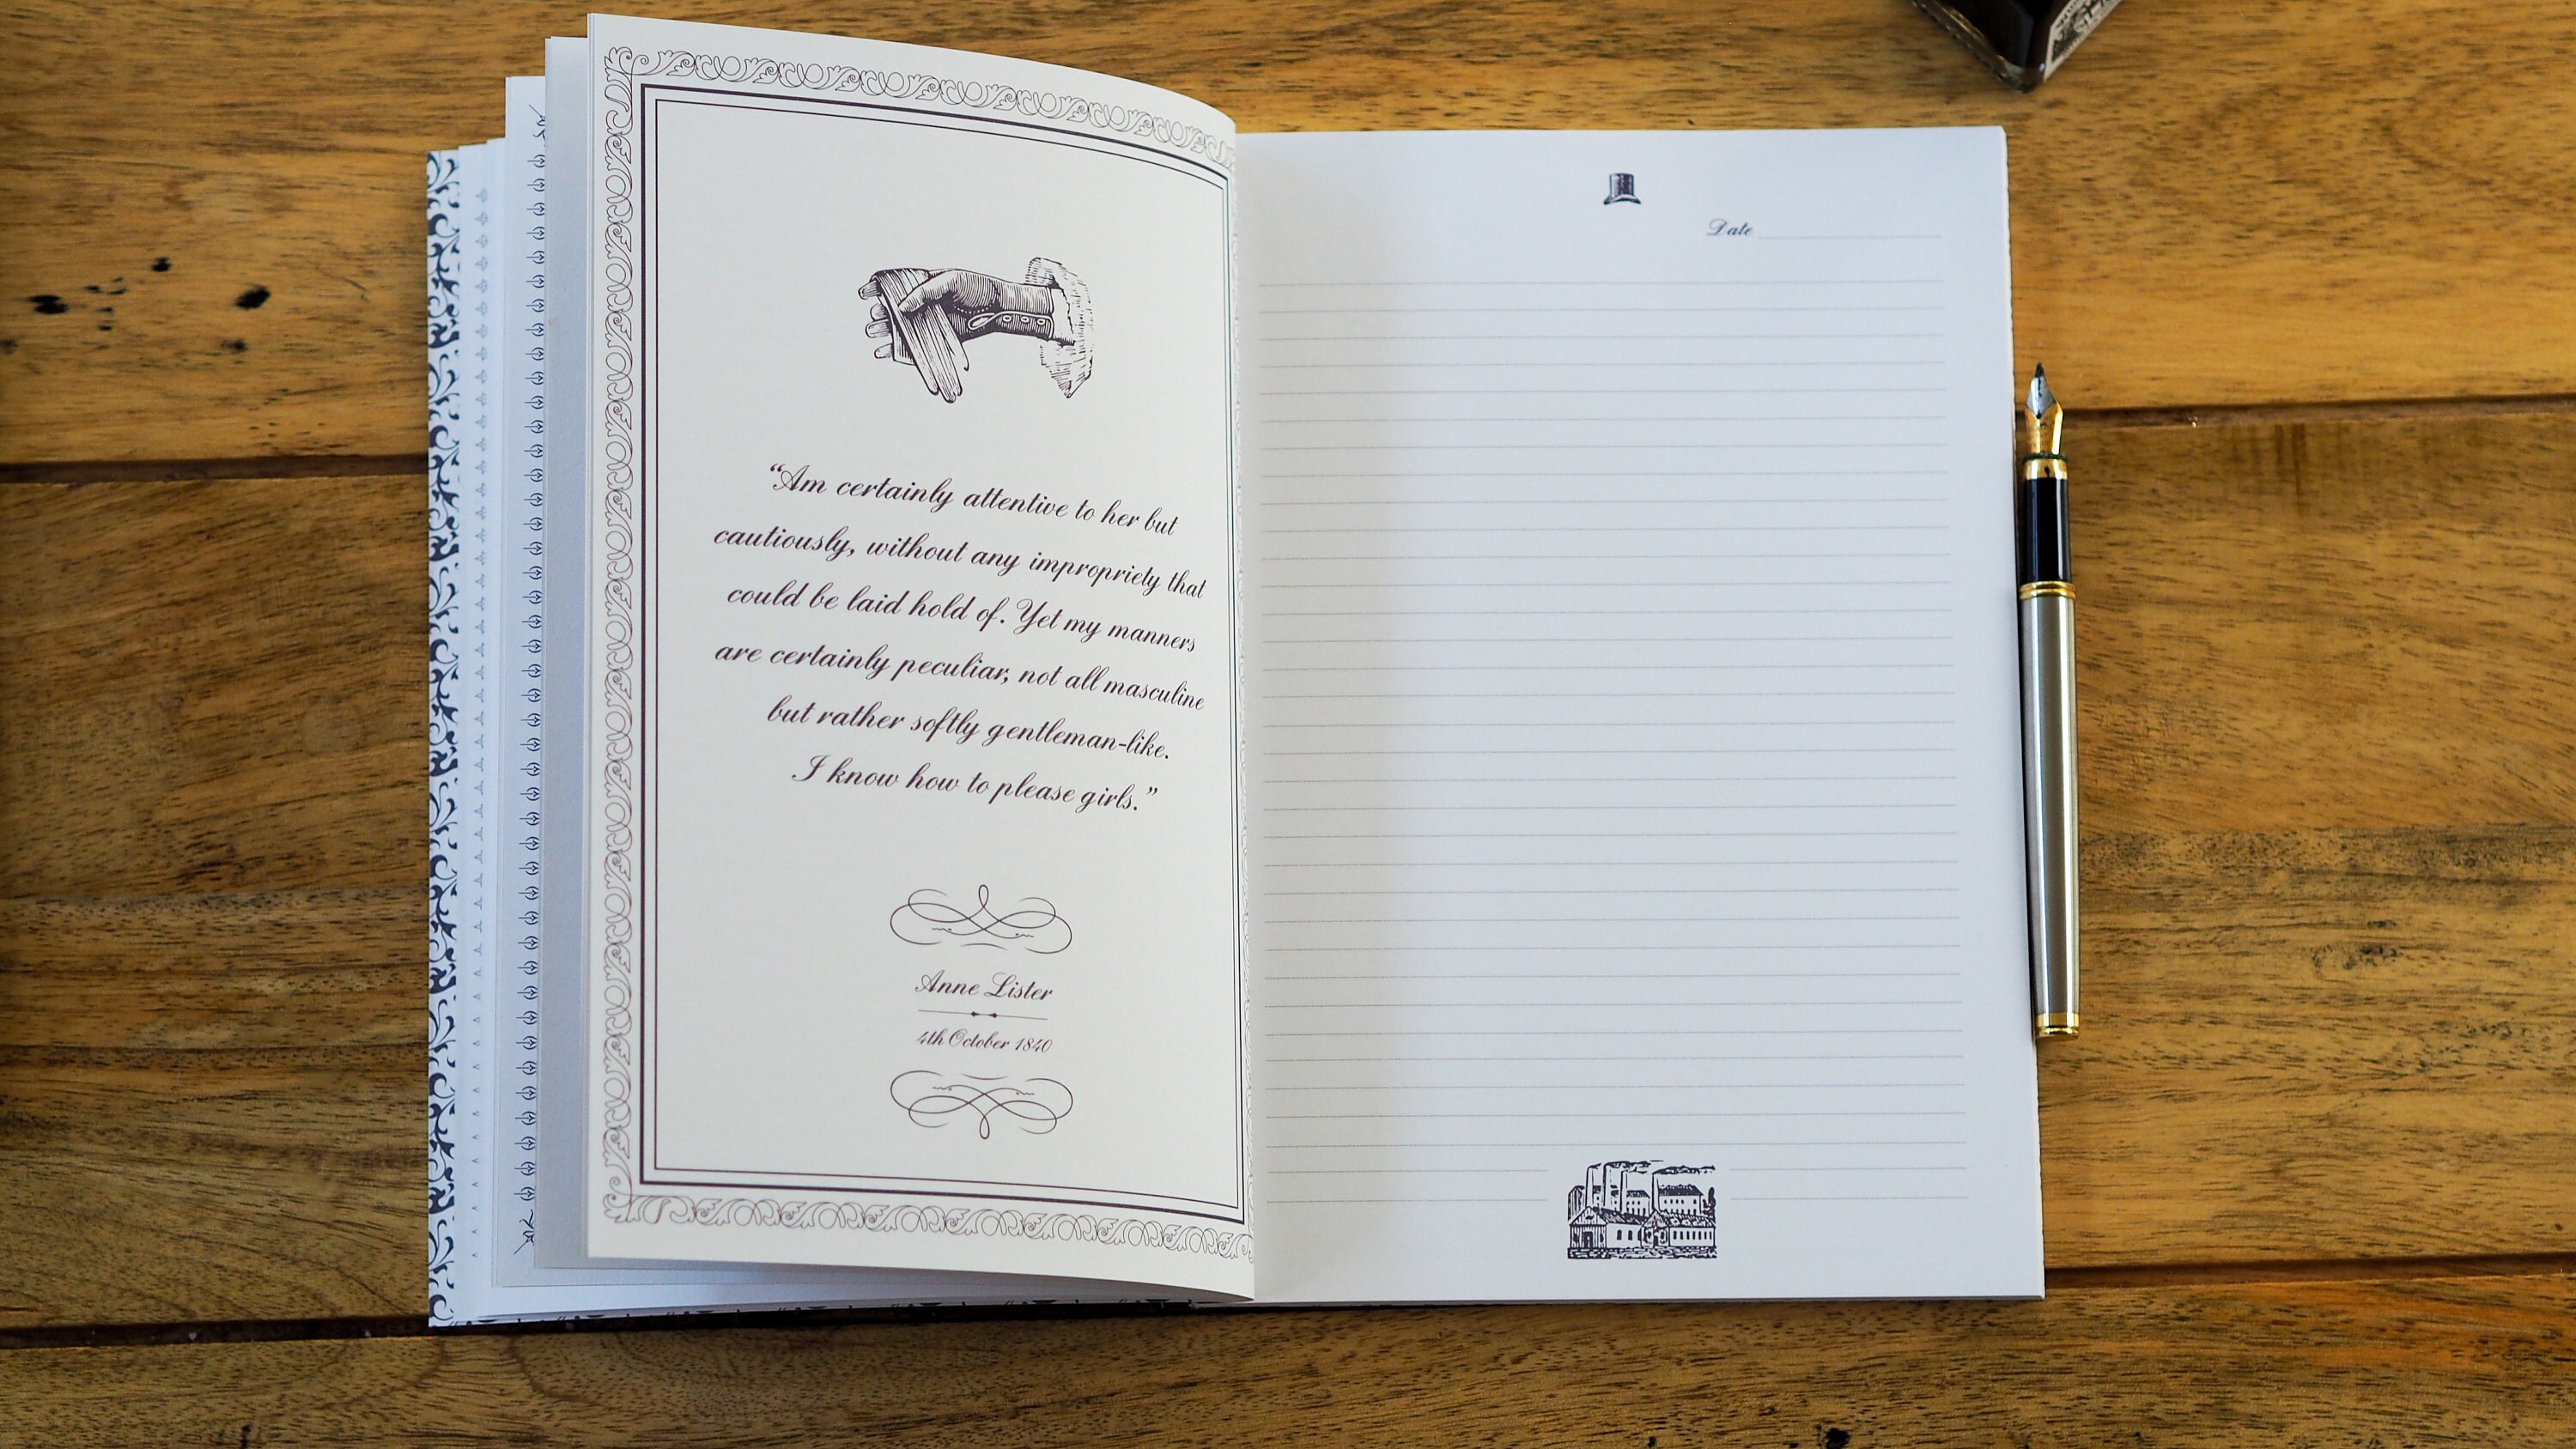 “Am certainly attentive to her but
cautiously, without any impropriety that
could be laid hold of. Yet my manners
are certainly peculiar, not all masculine
but rather softly gentleman-like.
I know how to please girls.”
Anne Lister
4th October 1840
Date